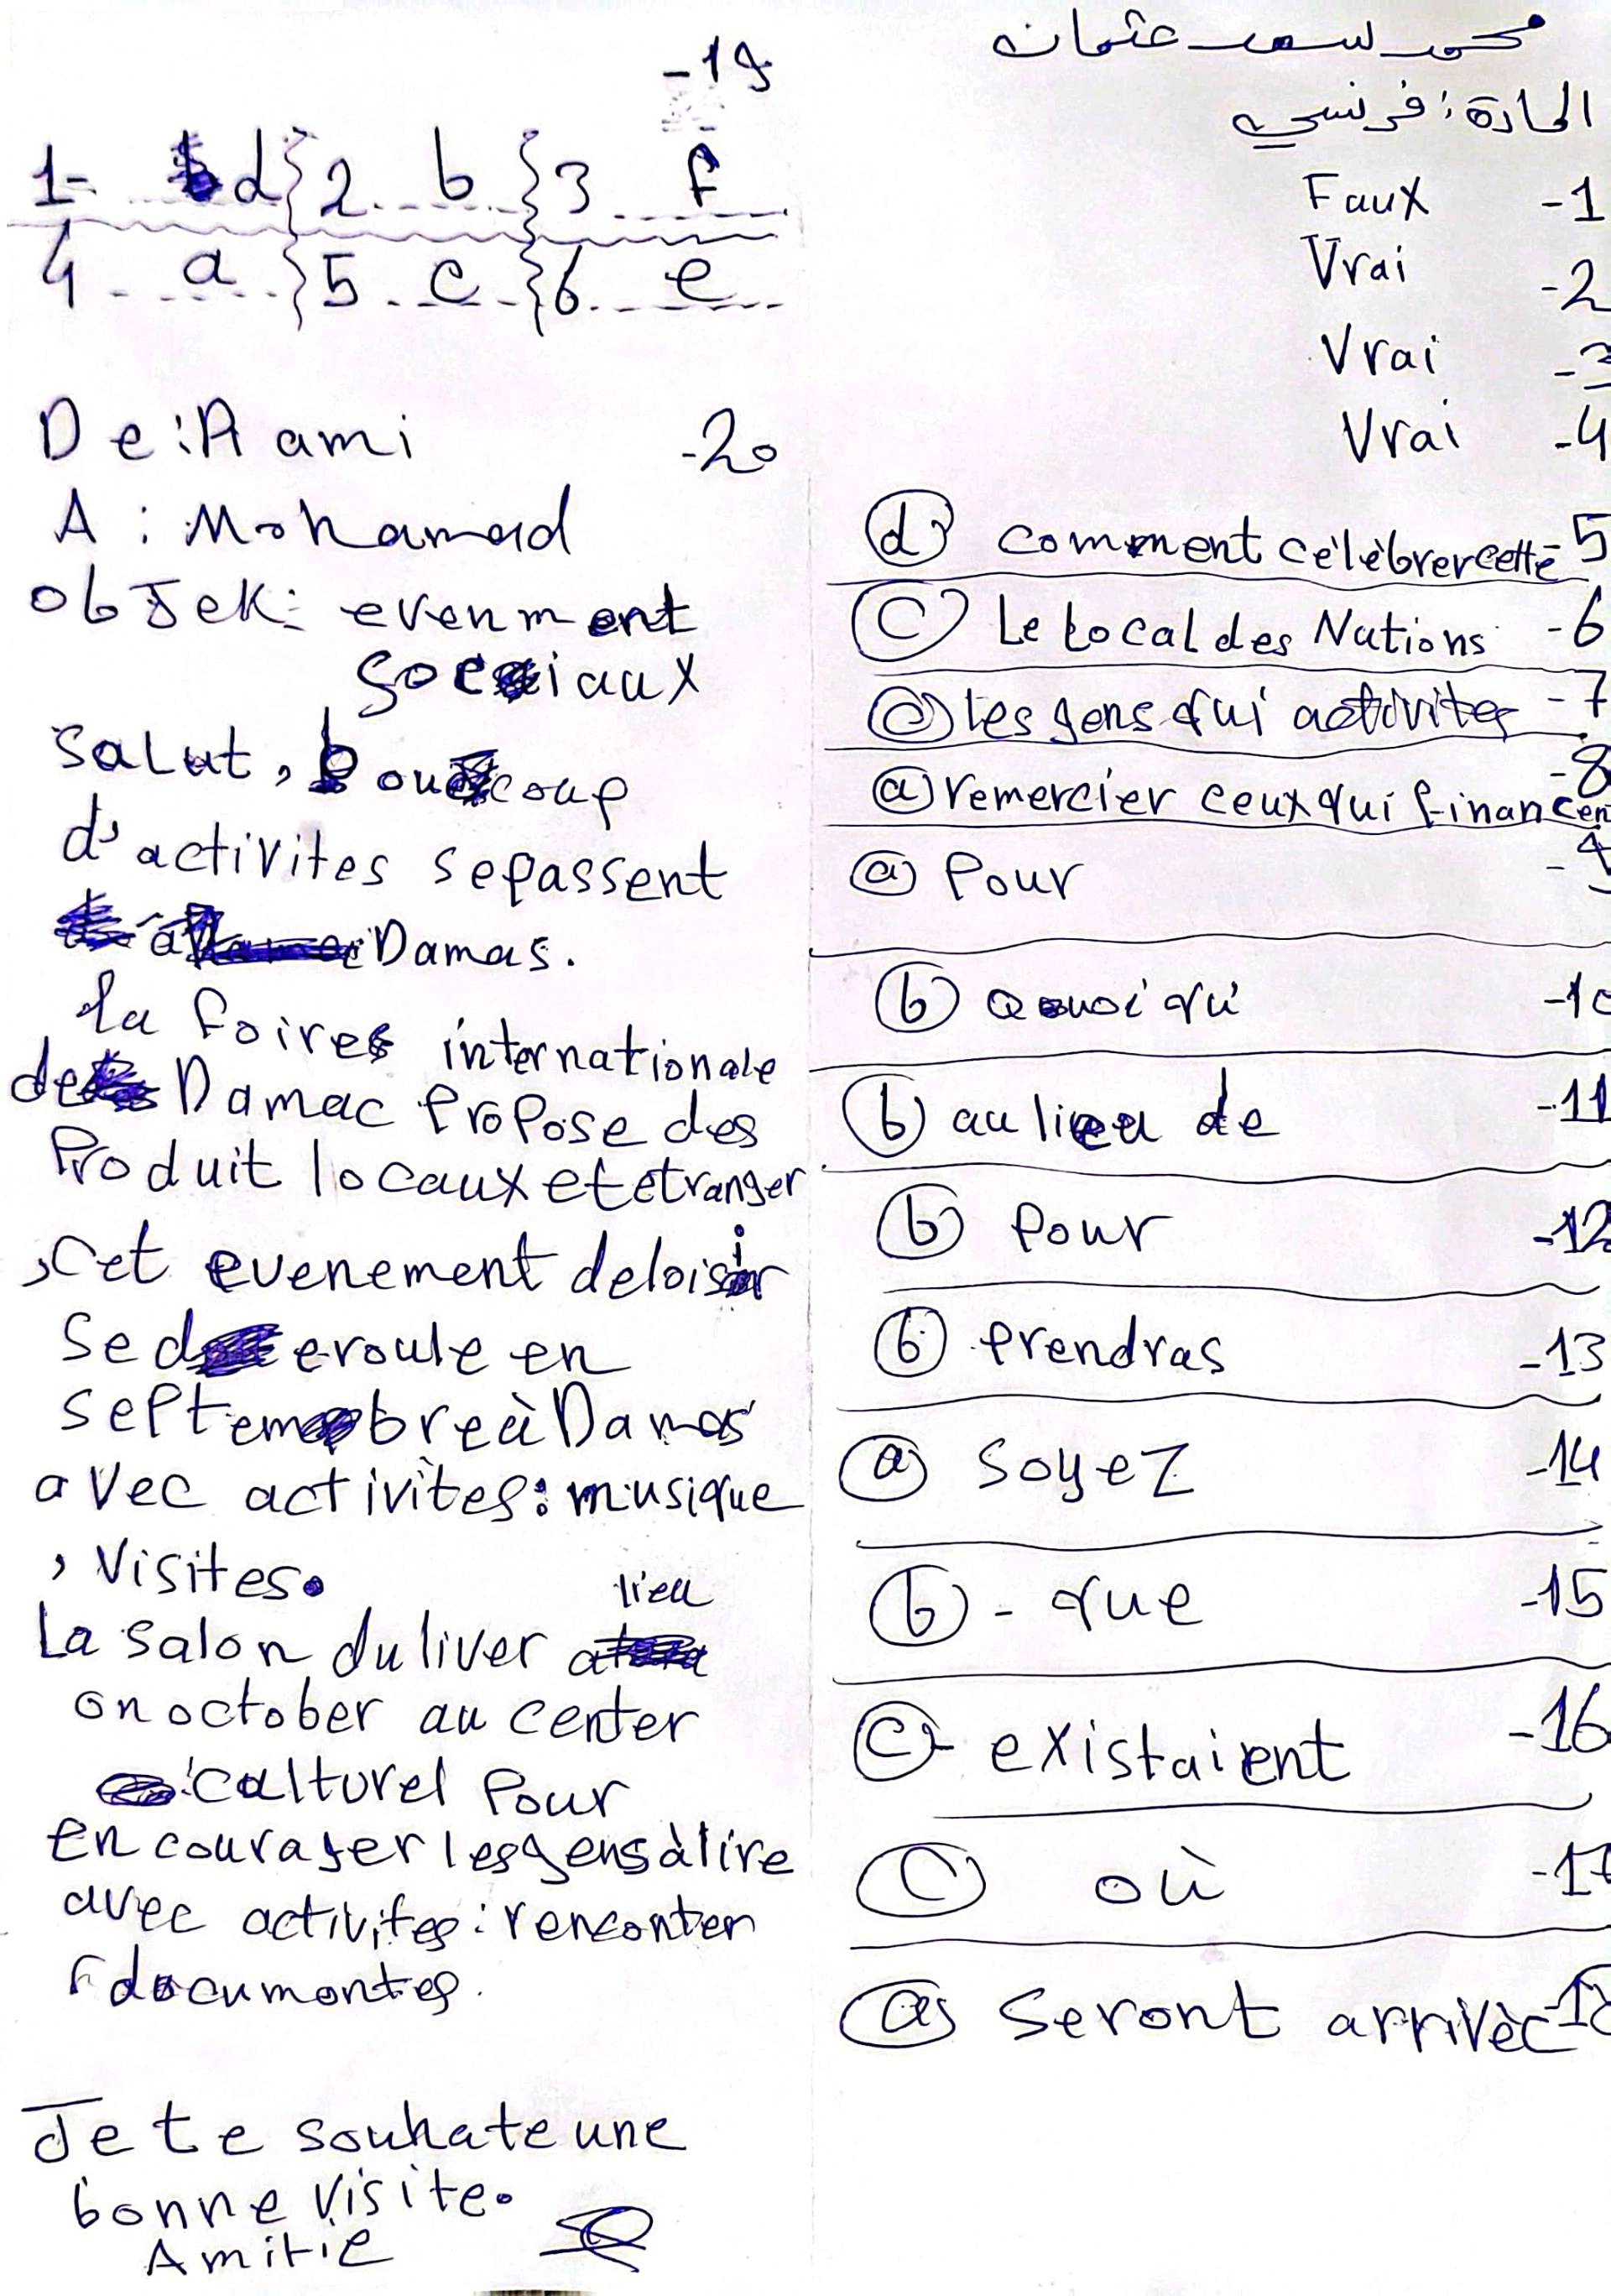 محمد سعد عثمان
المادة: فرنسي
Faux -1
Vrai -2
Vrai -3
Vrai -4
d comment célèbrer cette -5
C Le local des Nations -6
C les gens qui activites -7
a remercier ceux qui financen -8
a Pour -9
b Quoi qu' -10
b au lieu de -11
b Pour -12
b prendras -13
a soyez -14
b - que -15
C- existaient -16
C où -17
a seront arrivèc -18
-19
1- d 2 b 3 f
4 a 5 c 6 e
-20
De: A ami
A : Mohamad
obJek: evenment
sociaux
salut, boucoup
d'activites se passent
à Damas.
la foire internationale
de Damac Propose des
Produit locaux et etranger
, cet evenement de loisir
se deroule en
septembre à Damas
avec activites: musique
, visites.
La salon du liver a lieu
on october au center
culturel Pour
encourager les gens à lire
avec activites: renconter
documontes.
Je te souhate une
bonne visite.
Amitie